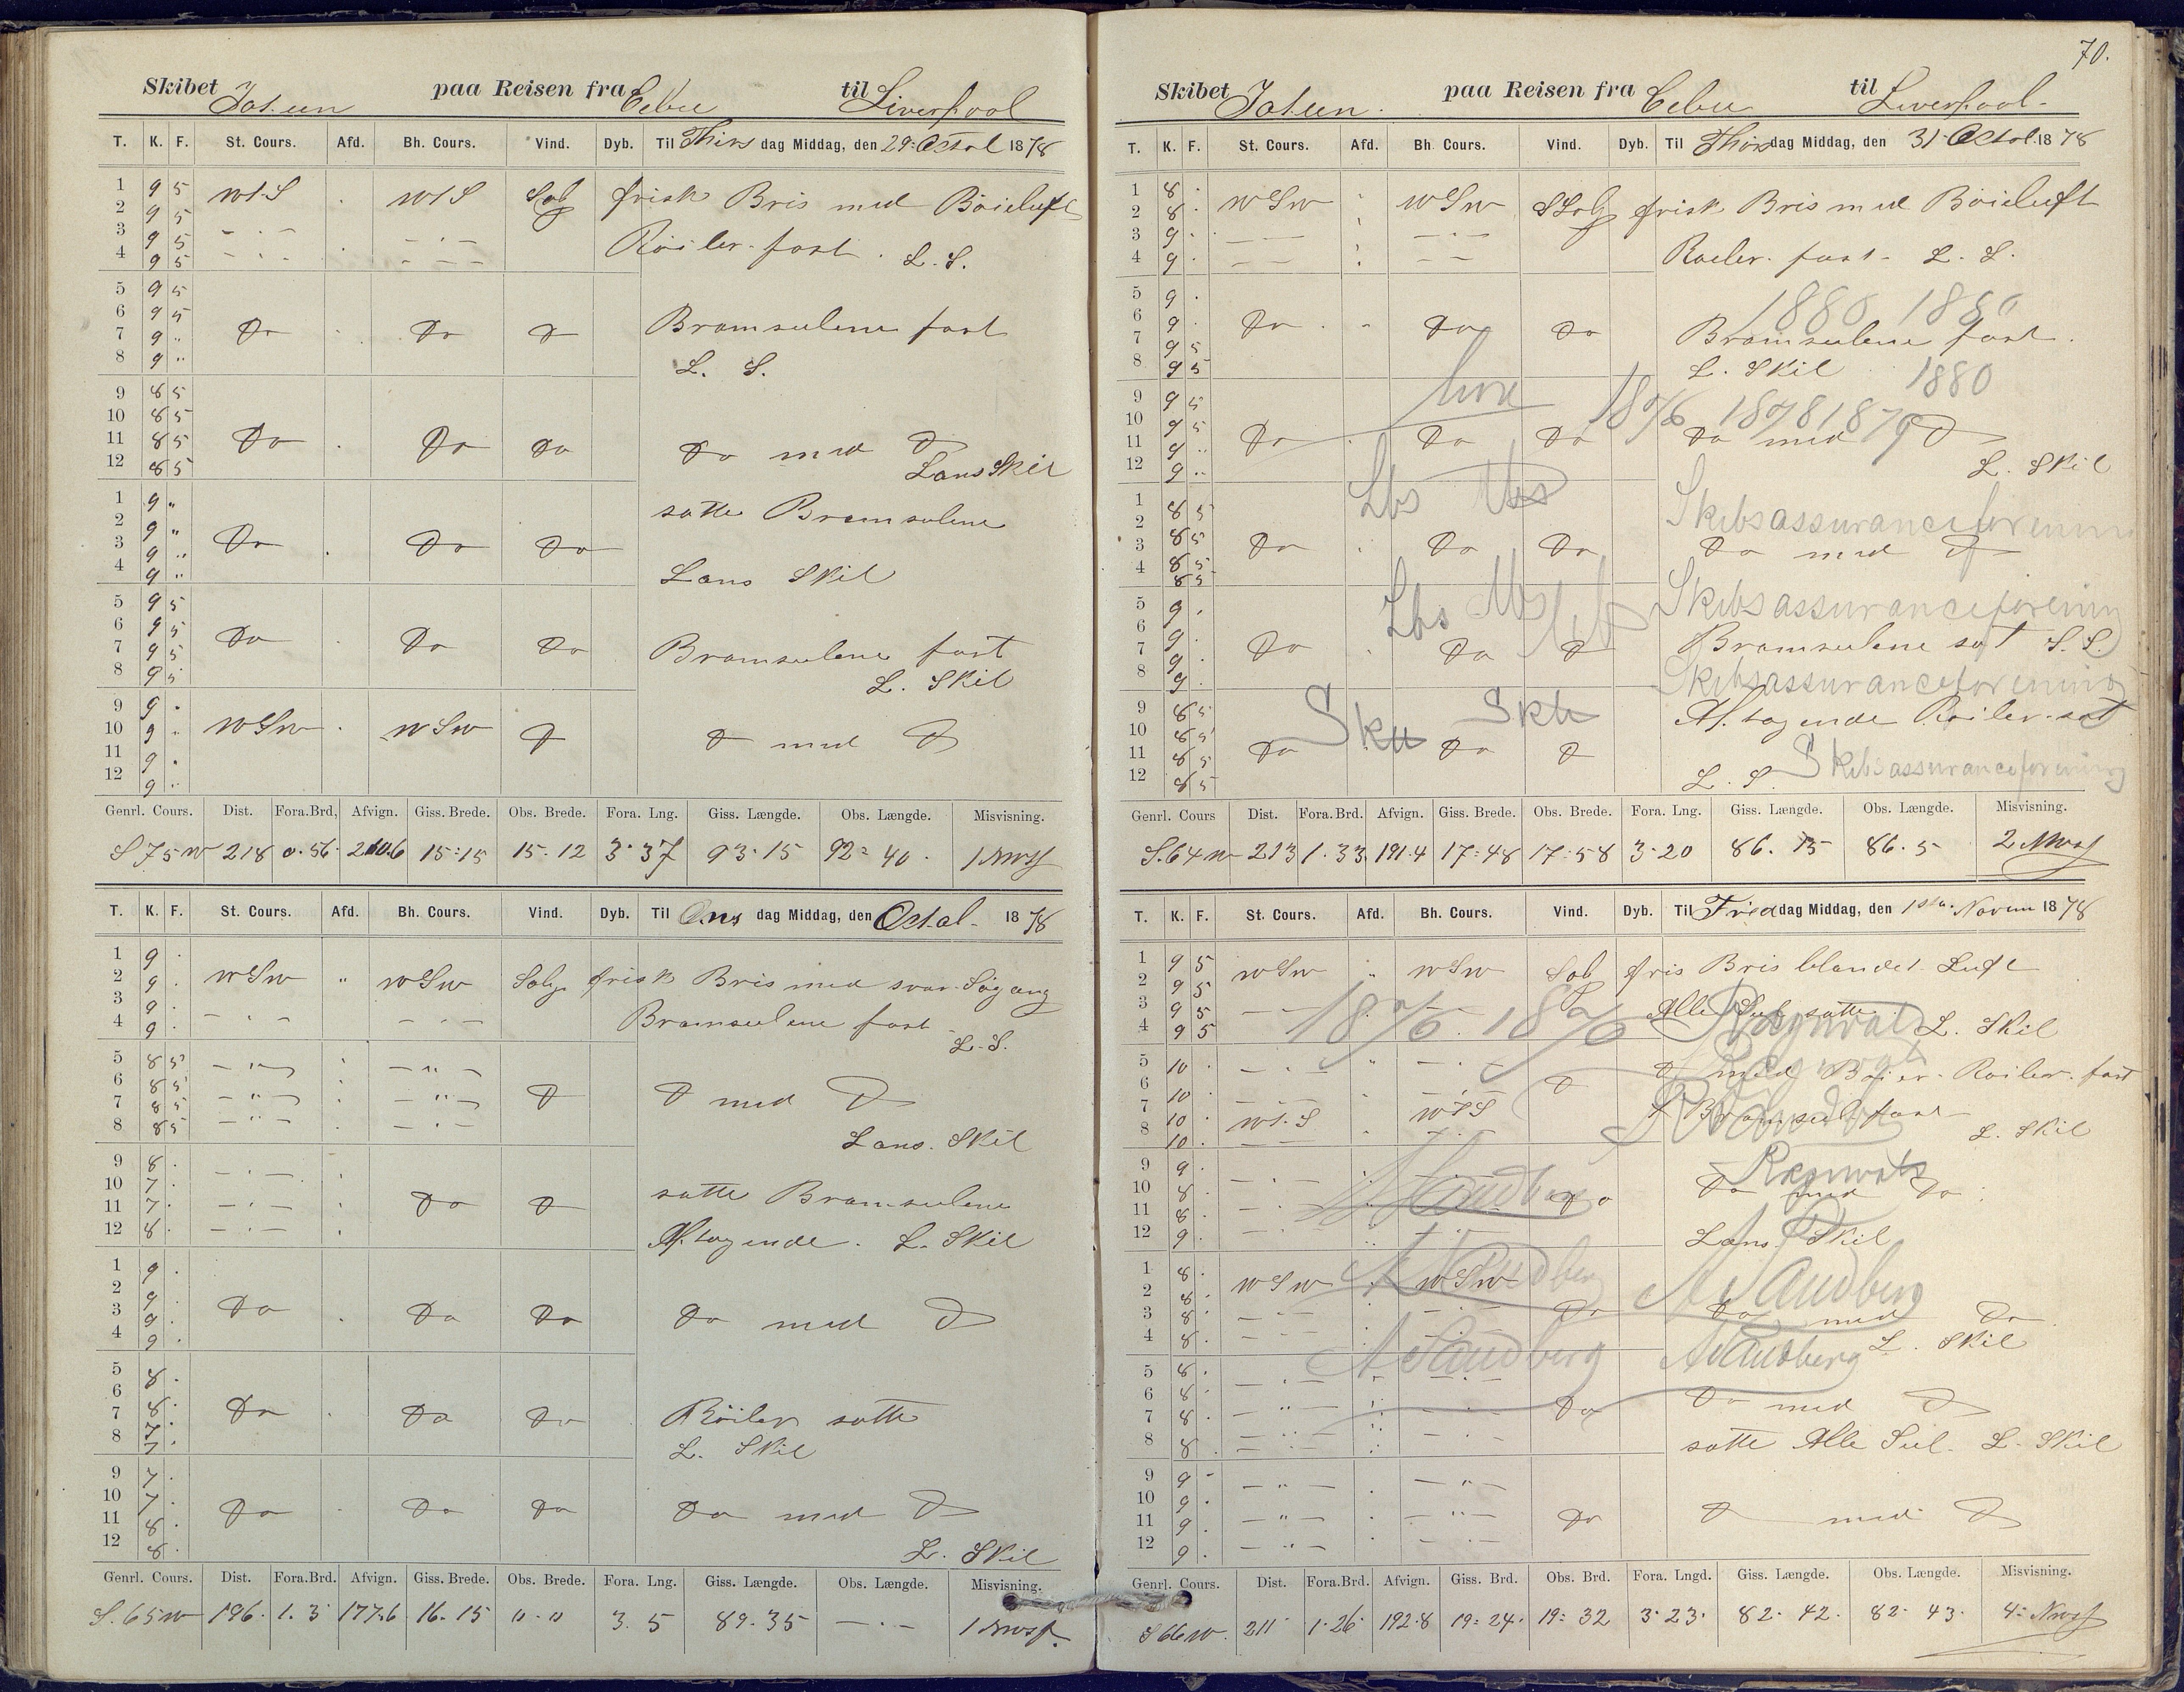 Skibet Jotun paa Reisen fra Cebu til Liverpool
T. K. F. St. Cours. Afd. Bh. Cours. Vind. Dyb. Til Thirs dag Middag, den 29: Octob 1878
1 9 5 WtS . WtS frisk Bris med Böieluft
2 9 5
3 9 5 - . -
4 9 5 - . - Röiler fast . L. S.
5 9 5
6 9 5 Do . Do Do Bramseilene fast
7 9 "
8 9 " L. S.
9 8 5
10 8 5
11 8 5 Do . Do Do Do med Do
12 8 5 Lars Skil
1 9 " satte Bramseilene
2 9 "
3 9 " Do . Do Do
4 9 " Lars Skil
5 9 5
6 9 5 Do . Do Do Bramseilene fast
7 9 5
8 9 5 L. Skil
9 9 .
10 9 . WSW . WSW Do Do med Do
11 9 .
12 9 .
Genrl. Cours. Dist. Fora.Brd. Afvign. Giss. Brede. Obs. Brede. Fora. Lng. Giss. Længde. Obs. Længde. Misvisning.
S 75 W 218 0.56 210.6 15:15 15:12 3.37 93.15 92:40
T. K. F. St. Cours. Afd. Bh. Cours. Vind. Dyb. Til Ons dag Middag, den Octob 1878
1 9 .
2 9 . WSW " WSW frisk Bris med svar Søgang
3 9 .
4 9 . - . - Bramseilene fast L. S.
5 8 5 - " -
6 8 5
7 8 5 - " - Do Do med Do
8 8 5 - . - Lars. Skil
9 8 . - . -
10 7 . Do Do satte Bramseilene
11 7 . - . -
12 8 . - . - Aftagende . L. Skil
1 9 .
2 9 .
3 9 . Do . Do Do Do med Do
4 9 .
5 8 .
6 8 .
7 8 . Do . Do Do Röiler satte
8 7 . L. Skil
9 7 .
10 7 .
11 8 . Do . Do Do Do med Do
12 8 . L. Skil
Genrl. Cours. Dist. Fora.Brd. Afvign. Giss. Brede. Obs. Brede. Fora. Lng. Giss. Længde. Obs. Længde. Misvisning.
S. 65 W 196. 1.3 177.6 16.15 3.5 89.35 - . -
70.
Skibet Jotun. paa Reisen fra Cebu til Liverpool
T. K. F. St. Cours. Afd. Bh. Cours. Vind. Dyb. Til Thors dag Middag, den 31 Octob. 1878
1 8 .
2 8 . WSW WSW frisk Bris med Böieluft
3 9 .
4 9 . Roeler. fast. L. S.
5 9 . 1880 1880
6 9 . Do . Do Do Bramseilene fast.
7 9 5
8 9 5 L. Skil 1880
9 9 5
10 9 5 1876 1878 1879
11 9 " Do . Do Do Do med Do
12 9 " L. Skil
Lbs
1 8 5 Skibsassuranceforening
2 8 5
3 8 5 Do . Do Do Do med Do
4 8 5
5 9 . Lbs Skibsassuranceforening
6 9 .
7 9 . Do . Do Do Bramseilene sat L. S.
8 9 . Skibsassuranceforening
9 8 5 Sku Skb Aftagende Röiler. sat
10 8 5
11 8 5 Do . Do Do
12 8 5 L. S. Skibsassuranceforening
Genrl. Cours Dist. Fora.Brd. Afvign. Giss. Brede. Obs. Brede. Fora. Lng. Giss. Længde. Obs. Længde. Misvisning.
S. 64 W 213 1.33 191.4 17:48 17:58 3.20 86. 15 86.5
T. K. F. St. Cours. Afd. Bh. Cours. Vind. Dyb. Til Fre dag Middag, den 1ste Novem 1878
1 9 5
2 9 5 WSW " WSW fris Bris blandet Luft
3 9 5 1876 1876 Alle Seil satte Ragnvald
4 9 5 L. Skil
5 10 . - . - " - . - Do med Böier. Roiler. fast
6 10 . Do
7 10 . WtS . WtS Bramseil fast
8 10 . L. Skil
9 9 . Ragnvald
10 8 . - . - A Sandberg Do Do med Do
11 8 .
12 9 . - . - Lars Skil
1 8 . A Sandberg A Sandberg
2 8 . WSW . WSW
3 8 . Do Do med Do
4 8 . L. Skil
5 8 . A Sandberg A Sandberg
6 8 . - . -
7 8 . - " - Do Do med Do
8 8 . satte Alle Seil. L. Skil
9 9 - - " - . - " -
10 9 .
11 9 . - " - . - " - Do Do med Do
12 9 . - " - - . -
Genrl. Cours. Dist. Fora.Brd. Afvign. Giss. Brd. Obs. Brd. Fora. Lngd. Giss. Længde. Obs. Længde. Misvisning.
S 66 W. 211 1.26 192.8 19:24. 19:32 3.23. 82. 42. 82. 43.